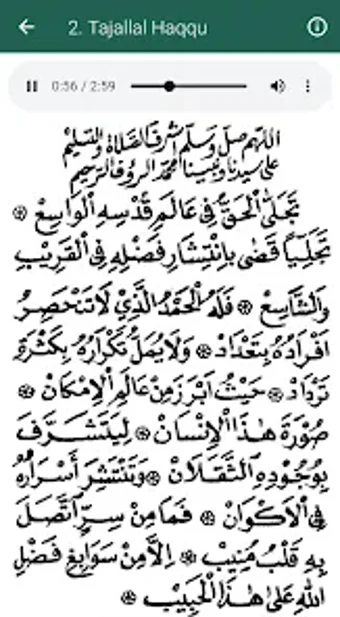 2. Tajallal Haqqu
0:56 / 2:59
اللهم صل وسلم أشرف الصلاة والتسليم
على سيدنا ونبينا محمد الرؤف الرحيم
تَجَلَّى الْحَقُّ فِي عَالَمِ قُدْسِهِ الْوَاسِعْ ۞
تَجَلِّيًا قَضَى بِانْتِشَارِ فَضْلِهِ فِي الْقَرِيْبِ
وَالشَّاسِعْ ۞ فَلَهُ الْحَمْدُ الَّذِيْ لَا تَنْحَصِرُ
اَفْرَادُهُ بِتَعْدَادْ ۞ وَلَا يَمَلُّ تَكْرَارُهُ بِكَثْرَةِ
تَرْدَادْ ۞ حَيْثُ اَبْرَزَ مِنْ عَالَمِ الْاِمْكَانْ ۞
صُوْرَةَ هٰذَا الْاِنْسَانْ ۞ لِيَتَشَرَّفَ
بِوُجُوْدِهِ الثَّقَلَانْ ۞ وَتَنْتَشِرَ اَسْرَارُهُ
فِي الْاَكْوَانْ ۞ فَمَا مِنْ سِرٍّ اتَّصَلَ
بِهِ قَلْبُ مُنِيْبْ ۞ اِلَّا مِنْ سَوَابِغِ فَضْلِ
اللهِ عَلَى هٰذَا الْحَبِيْبْ ۞